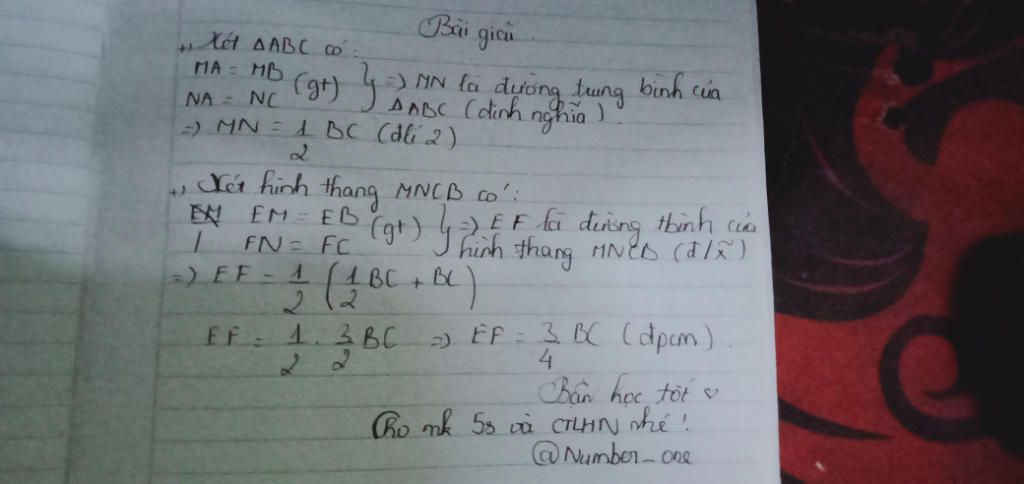 Bài giải
+, Xét ΔABC có:
MA = MB
NA = NC (gt) } => MN là đường trung bình của
ΔABC (định nghĩa).
=> MN = 1/2 BC (đlí 2)
+, Xét hình thang MNCB có:
EM = EB
FN = FC (gt) } => EF là đường tbình của
hình thang MNCB (đ/ñ)
=> EF = 1/2 (1/2 BC + BC)
EF = 1/2 . 3/2 BC => EF = 3/4 BC (đpcm).
Bạn học tốt ♡
Cho mk 5s và CTLHN nhé!
@Number_one